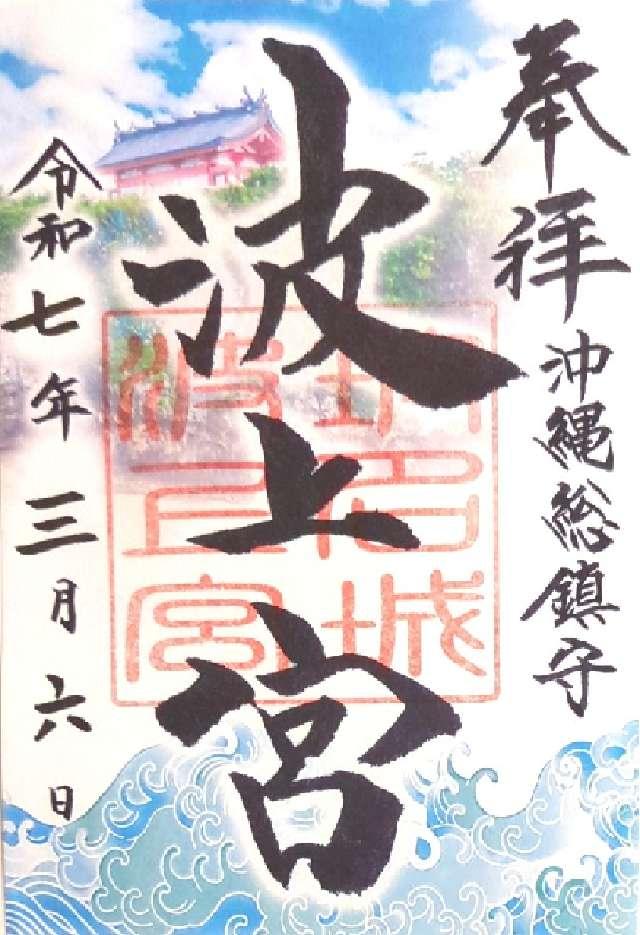 奉拝
沖縄総鎮守
波上宮
令和七年三月六日